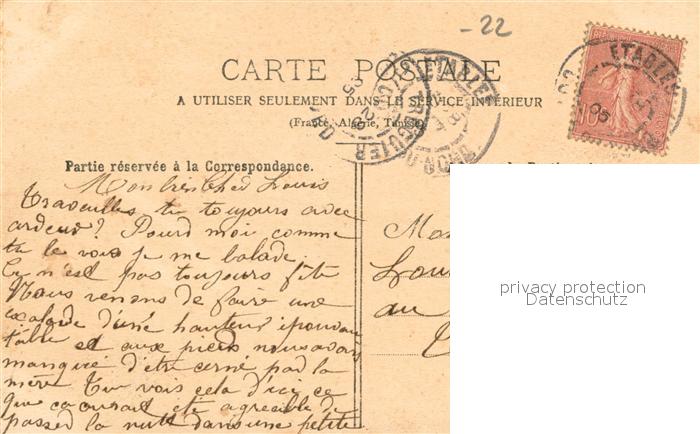 -22
CARTE POSTALE
A UTILISER SEULEMENT DANS LE SERVICE INTÉRIEUR
(France, Algérie, Tunisie)
ETABLES
TREGUIER
ETABLES
Partie réservée à la Correspondance.
Mon bien cher Louis
travailles tu toujours avec
ardeur? Pourd moi comme
tu le vois je me balade.
Ce n'est pas toujours fête
Nous venons de faire une
balade d'une hauteur épouvan
table et aux pieds nous avons
manqué d'être cerné par la
mère Tu vois cela d'ici ce
que ca aurait été agréable de
passer la nuit dans une petite
Mon
Lou
au
privacy protection
Datenschutz